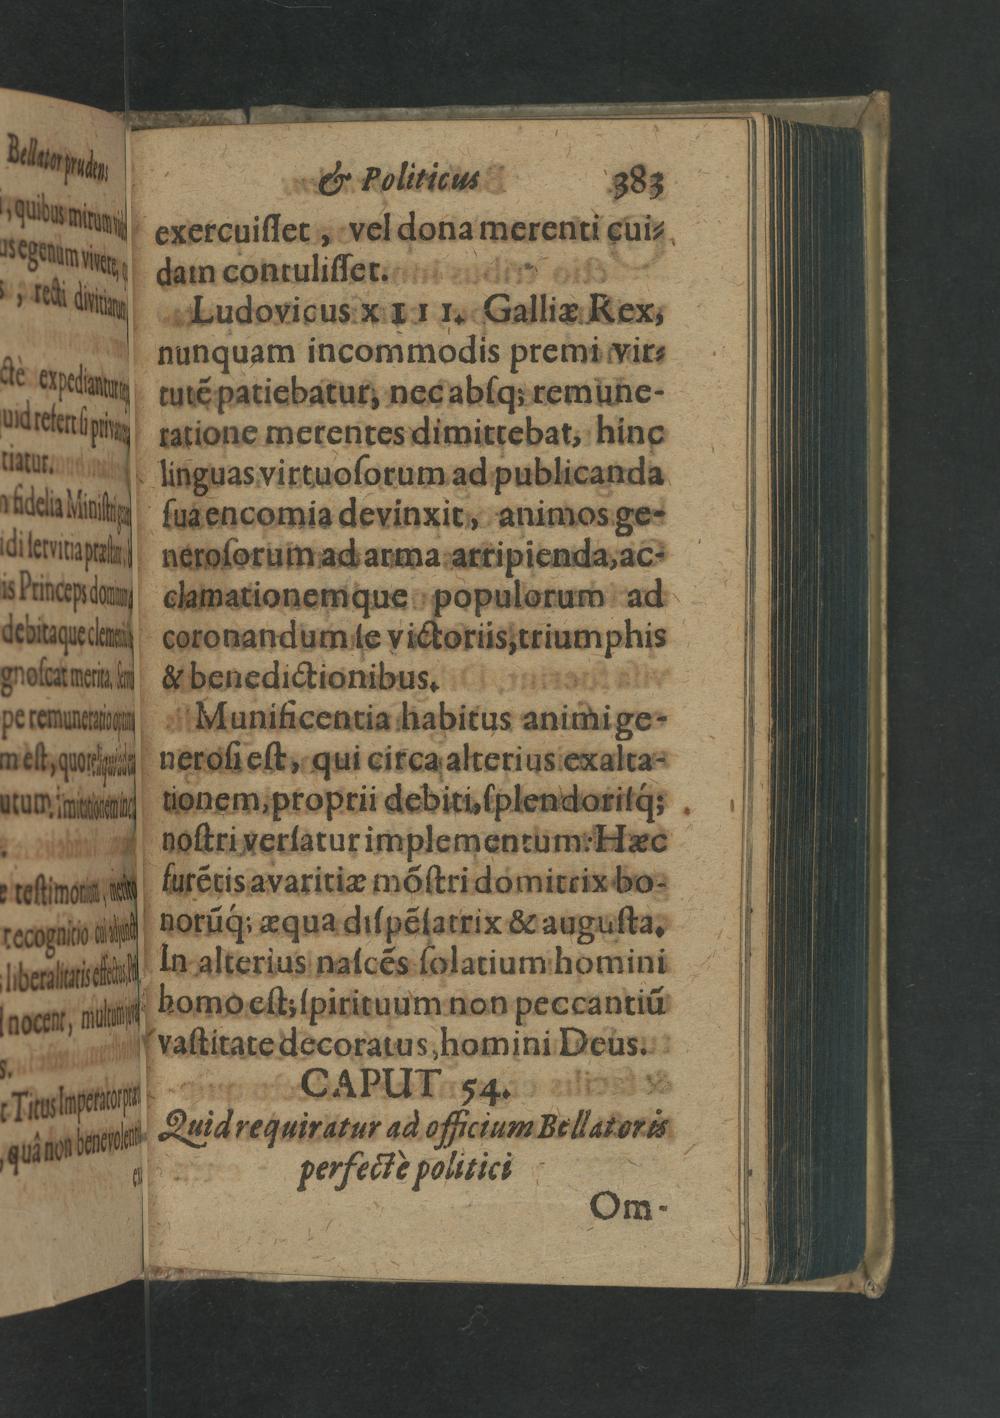 Bellator prudens
, quibus mirum
us egenum vivere,
, recti divitiarum
ctè expediantur
uid refert si priva
tiatur.
fidelia Ministri
idi servitia præstant,
is Princeps
debitaque
gnoscat merita,
pe remuneratio
m est, quo
utum,
testimonium,
recognitio
liberalitatis effectus,
nocent, multum
s.
Titus Imperator
, quâ non
ex
& Politicus 383
exercuiſſet, vel dona merenti cui-
dam contuliſſet.
Ludovicus XIII. Galliæ Rex,
nunquam incommodis premi vir-
tutẽ patiebatur, nec abſq; remune-
ratione merentes dimittebat, hinc
linguas virtuoſorum ad publicanda
ſua encomia devinxit, animos ge-
neroſorum ad arma arripienda, ac-
clamationemque populorum ad
coronandum ſe victoriis, triumphis
& benedictionibus.
Munificentia habitus animi ge-
neroſi eſt, qui circa alterius exalta-
tionem, proprii debiti, ſplendoriſq́;
noſtri verſatur implementum: Hæc
furẽtis avaritiæ mõſtri domitrix bo-
norũq́; æqua diſpẽſatrix & auguſta.
In alterius naſcẽs ſolatium homini
homo eſt; ſpirituum non peccantiũ
vaſtitate decoratus, homini Deus.
CAPUT 54.
Quid requiratur ad officium Bellatoris
perfectè politici
Om-